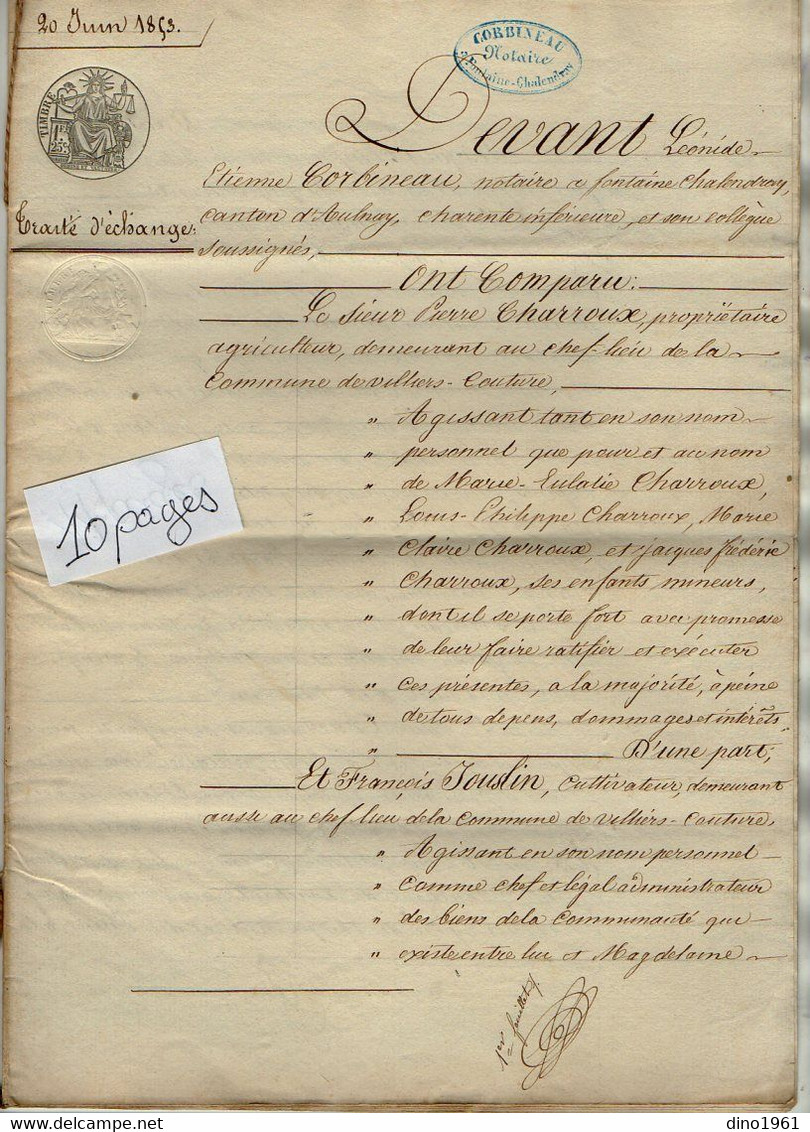 20 Juin 1853.
CORBINEAU
Notaire
à Fontaine-Chalendray
TIMBRE
1F
25C
Traité d'échange:
Devant Léonide
Etienne Corbineau, notaire a fontaine Chalendray,
canton d'Aulnay, charente inférieure, et son collègue
soussignés,
Ont Comparu:
Le Sieur Pierre Charroux, propriétaire
agriculteur, demeurant au chef-lieu de la
Commune de Villiers-Couture,
" Agissant tant en son nom
" personnel que pour et au nom
" de Marie-Eulalie Charroux,
" Louis-Philippe Charroux, Marie
" Claire Charroux, et jacques frédéric
" Charroux, ses enfants mineurs,
" dont il se porte fort avec promesse
" de leur faire ratifier et exécuter
" ces présentes, a la majorité, à peine
" de tous depens, dommages et intérêts
" D'une part;
Et François Jouslin, Cultivateur, demeurant
aussi au chef lieu de la Commune de Villiers-Couture,
" Agissant en son nom personnel
" Comme chef et légal administrateur
" des biens de la Communauté qui
" existe entre lui et Magdelaine
1er feuillet
10 pages
dino1961